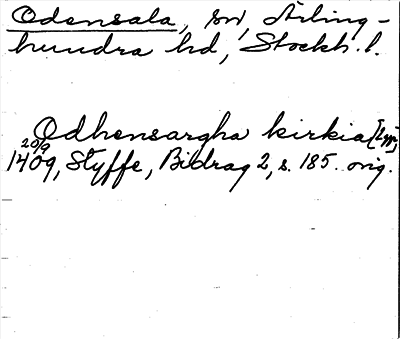 Odensala, sn, Ärling-
hundra hd, Stockh. l.
Odhensargha kirkia
20/9
1409, Styffe, Bidrag 2, s. 185. orig.